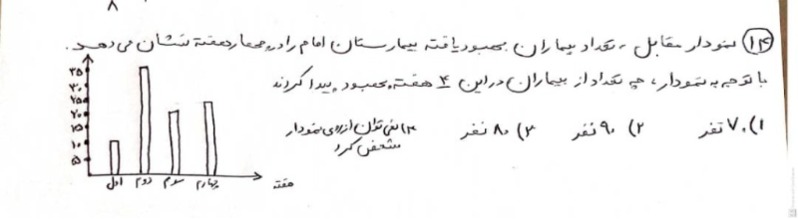 ۸
۱۴) نمودار مقابل، تعداد بیماران بهبود یافته بیمارستان امام را در چهار هفته نشان می‌دهد.
با توجه به نمودار، چه تعداد از بیماران در این ۴ هفته بهبود پیدا کردند
۱) ۷۰ نفر ۲) ۹۰ نفر ۳) ۸۰ نفر ۴) نمی‌توان از روی نمودار
مشخص کرد
۳۵
۳۰
۲۵
۲۰
۱۵
۱۰
۵
اول دوم سوم چهارم هفته